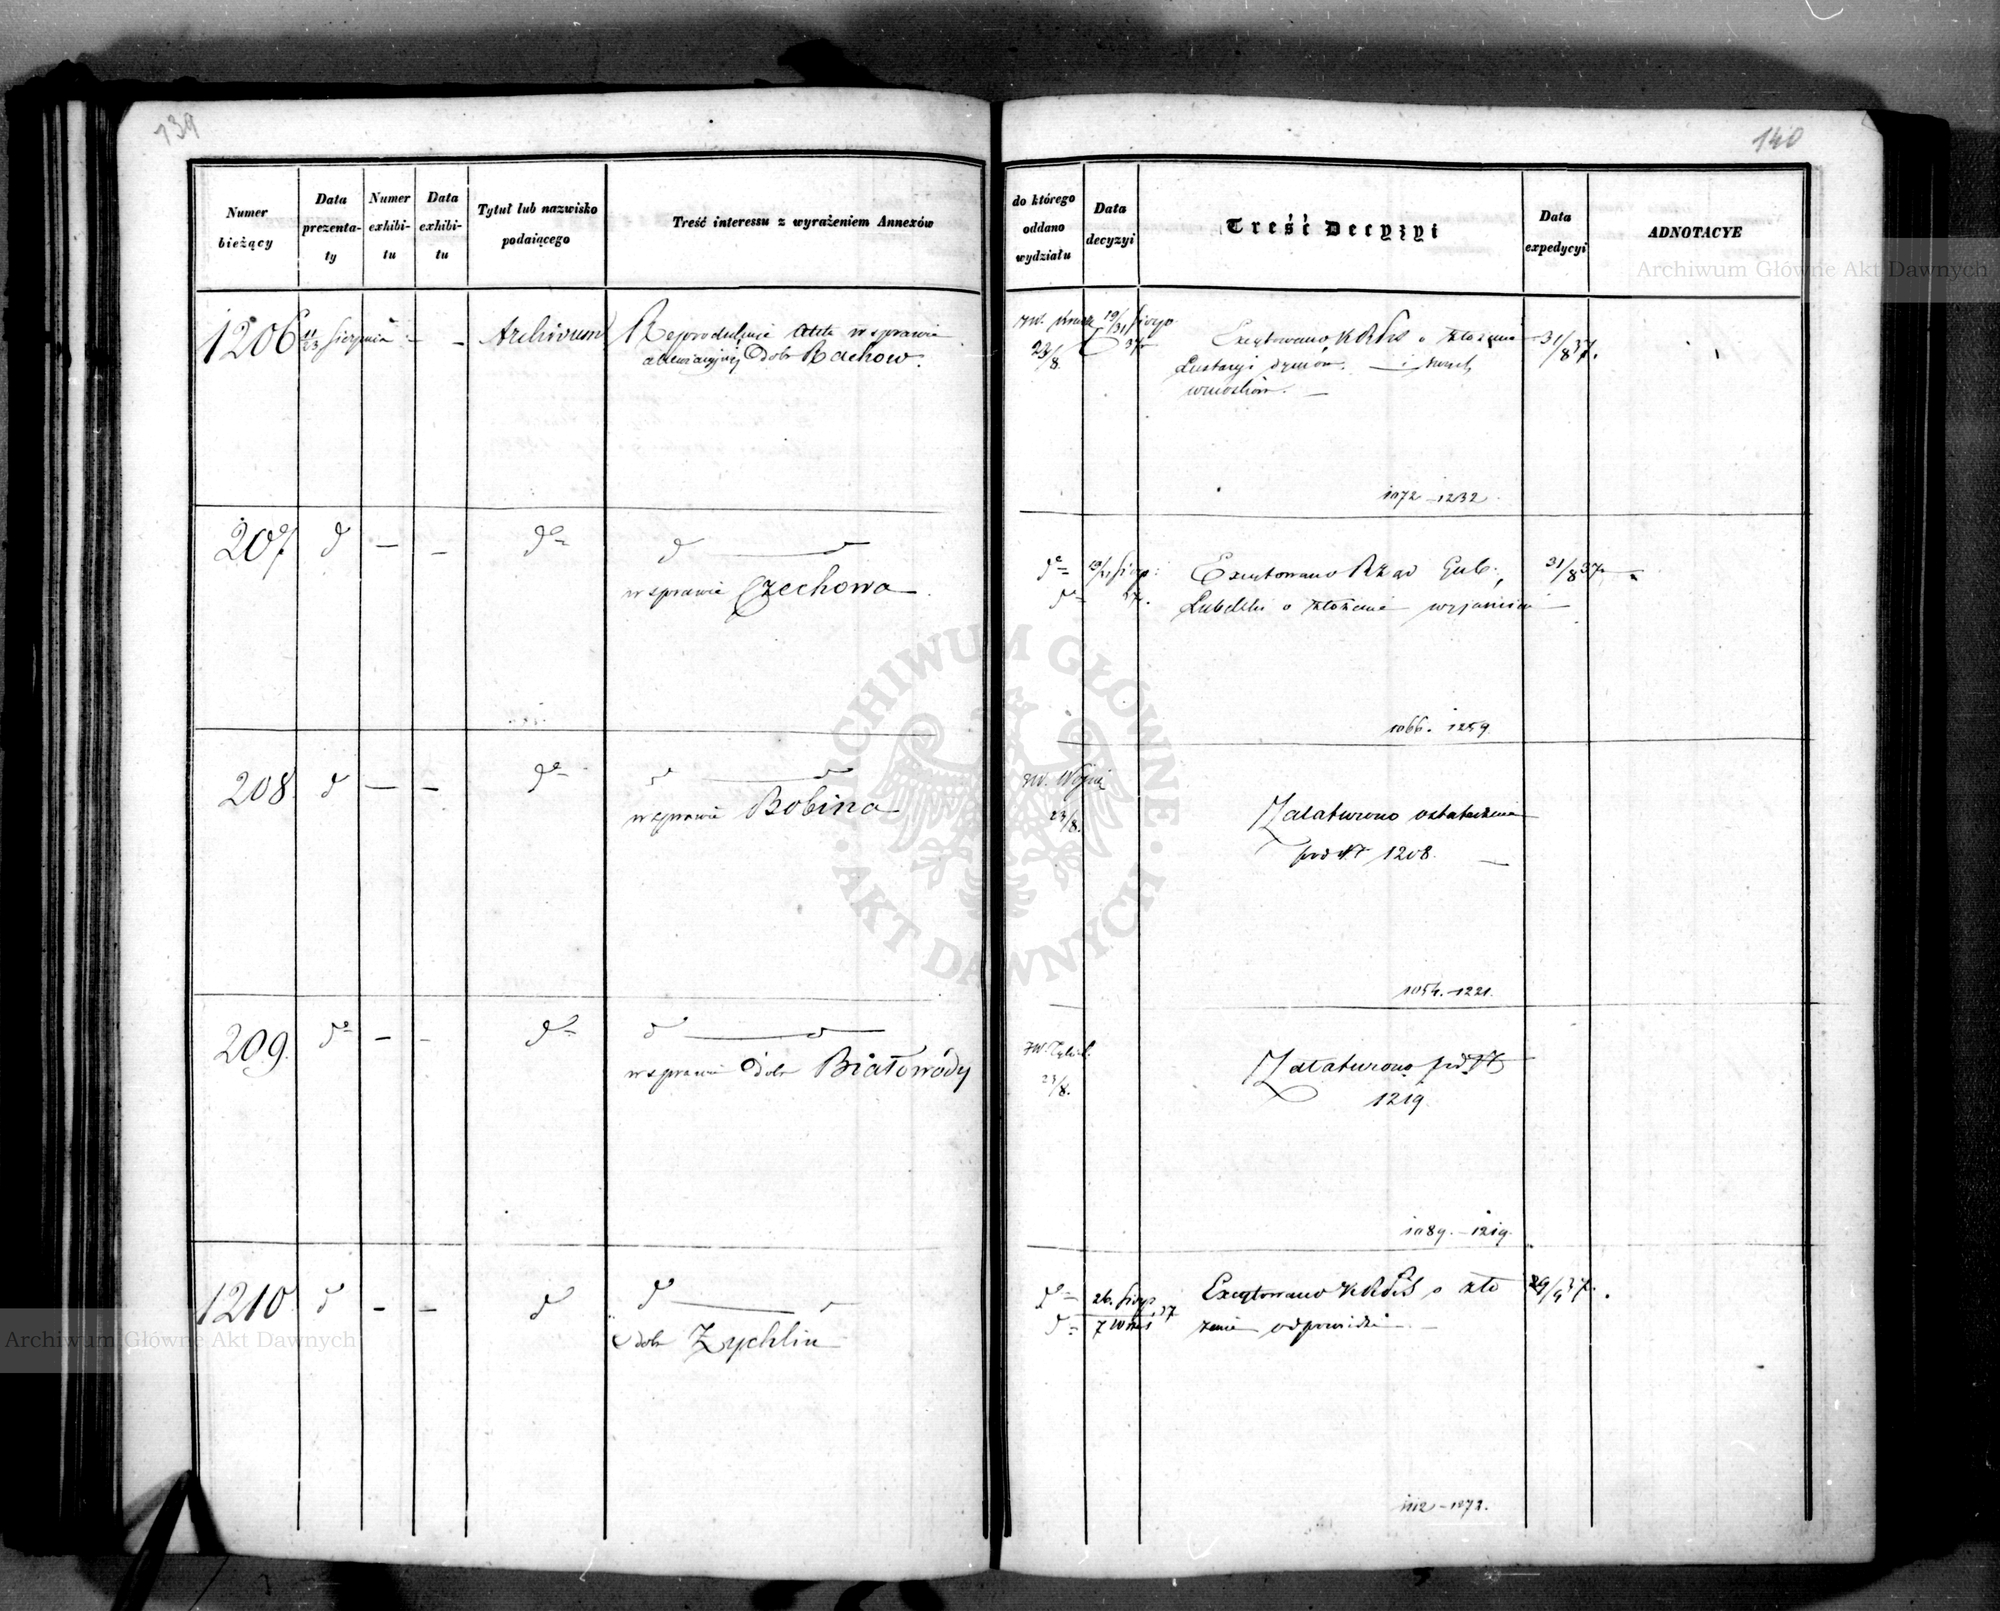 139
140
Numer bieżący
Data prezentaty
Numer exhibitu
Data exhibitu
Tytuł lub nazwisko podaiącego
Treść interessu z wyrażeniem Annexów
do którego oddano wydziału
Data decyzyi
Treść Decyzyi
Data expedycyi
ADNOTACYE
1206 11/23 Sierpnia - - Archiwum
Reprodukuje Akta w sprawie
Dobr Rachow.
23/8
19/31 Sierp 37
Exeytowano KRPiS o złożenie
Lustracyi dymów. — i
wniosków. —
31/8 37.
1072 - 1232.
207 d - - do
d d
w sprawie Czechowa
do do
19/31 Sierp: 37.
Exeytowano Rząd Gub.
Lubelski o złożenie wyjaśnień
31/8 37.
1066. - 1259.
208 d - - do
d d
w sprawie Bobina
23/8.
Załatwiono ostatecznie
pod N 1208.
1054. - 1221.
209. do - - do
d d
w sprawie Dobr Białowody
23/8.
Załatwiono pod N
1219.
1089. - 1219.
1210 d - - d
d
dobr Zychlin
do do
26. Sierp 7 Wrześ 37
Exeytowano KRPiS o zło
żenie odpowiedzi —
29/9 37.
1112 - 1272.
ARCHIWUM GŁÓWNE AKT DAWNYCH
Archiwum Główne Akt Dawnych
Archiwum Główne Akt Dawnych